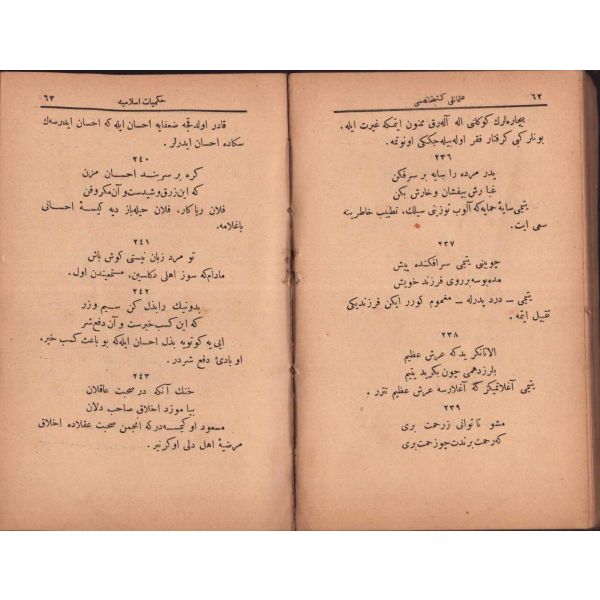 ٦٢
عثمانلی كتبخانه‌سی
بیچاره‌لرك كوكلنی اله آله‌رق ممنون ایتمكه غیرت ایله.
بونلر كبی گرفتار فقر اوله‌بیله‌جككی اونوتمه.
٢٣٦
پدر مرده را سایه بر سرفكن
غبارش بیفشان و خارش بكن
یتیمی سایهٔ حمایه‌كه آلوب توزینی سیلك، تطییب خاطرینه
سعی ایت.
٢٣٧
چوبینی یتیمی سرافكنده پیش
مده بوسه بر روی فرزند خویش
یتیمی ـ درد پدرله ـ مغموم كورر ایكن فرزندیكی
تقبیل ایتمه.
٢٣٨
الا تانگرید كه عرش عظیم
بلرزد همی چون بگرید یتیم
یتیمی آغلاتمیكز كه آغلارسه عرش عظیم تتزر.
٢٣٩
مشو تا توانی زرحمت بری
كه رحمت برندت چو زحمت بری
حكمیات اسلامیه
٦٣
قادر اولدقجه ضعفایه احسان ایله كه احسان ایدرسه‌ك
سكاده احسان ایدرلر.
٢٤٠
گره بر سر بند احسان مزن
كه این زرق و شیدست و آن مكر و فن
فلان ریاكار، فلان حیله‌باز دیه كیسهٔ احسانی
باغلامه.
٢٤١
تو مرد زبان نیستی كوش باش
مادام‌كه سوز اهلی دكلسین، مستمعیندن اول.
٢٤٢
بدونیك را بذل كن سیم و زر
كه این كسب خیرست و آن دفع شر
ایی یه كوتویه بذل احسان ایله‌كه بو باعث كسب خیر،
او بادیٔ دفع شردر.
٢٤٣
خنك آنكه در صحبت عاقلان
بیاموزد اخلاق صاحب دلان
مسعود او كیمسه‌دركه انجمن صحبت عقلاده اخلاق
مرضیهٔ اهل دلی اوكرنیر.